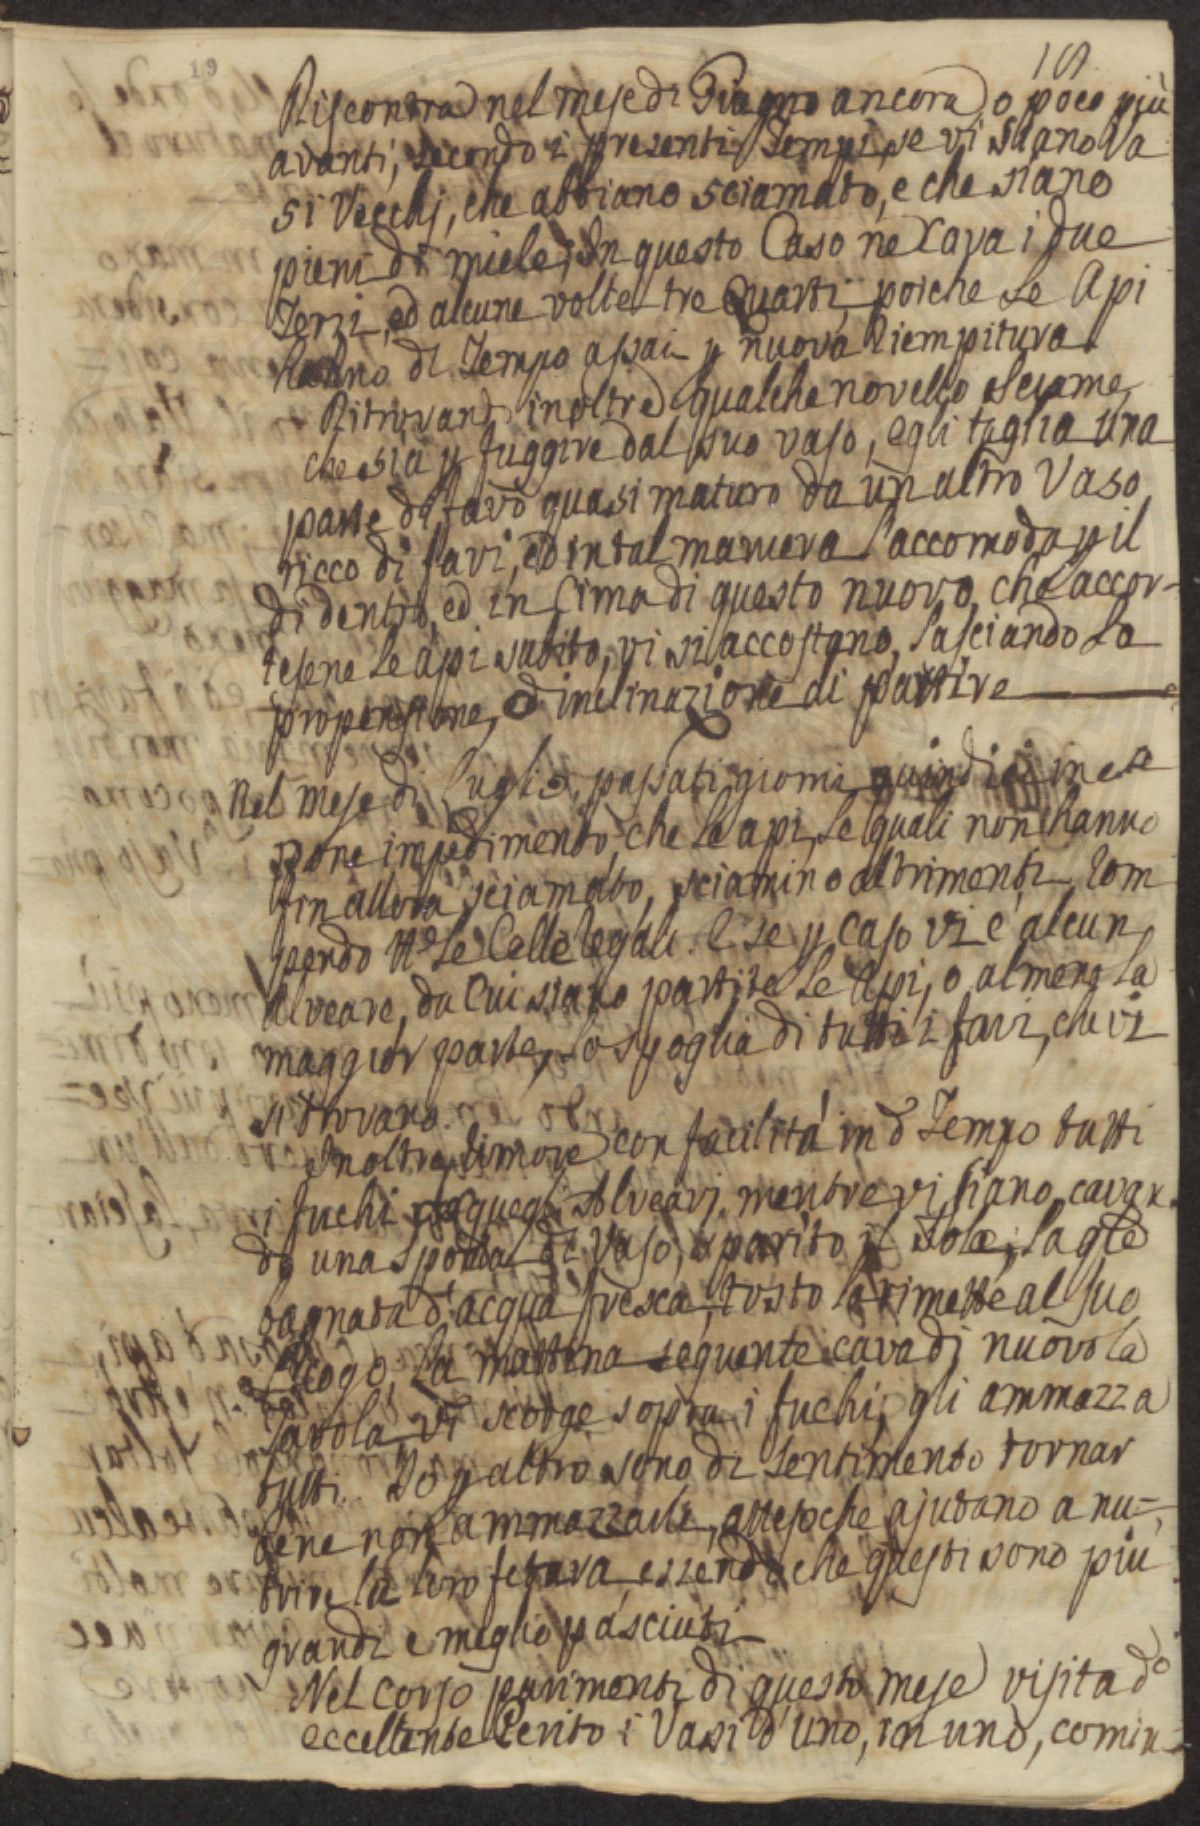 19
Riscontra nel mese di Giugno ancora, o poco più
avanti, secondo i presenti Tempi, se vi siano Va
si Vecchj, che abbiano sciamato, e che siano
pieni di miele; In questo Caso ne Cava i due
Terzi, ed alcune volte tre Quarti, poiche le Api
hanno di Tempo assai p nuova Riempitura.
Ritrovand inoltre qualche novello sciame,
che sia p fuggire dal suo vaso, egli taglia una
parte di favo quasi maturo da un altro Vaso
ricco di favi, ed in tal maniera l'accomoda p il
di dentro, ed in Cima di questo nuovo, che accor-
tesene le api subito, vi si accostano, lasciando la
propensione, ed inclinazione di partire
Nel mese di Luglio, passati giorni quindici in
pone impedimento, che le api, le quali non hanno
fin allora sciamato, sciamino altrimenti, Rom
pendo le Celle legali. E se p caso vi è alcun
Alveare, da Cui siano partite le Api, o almeno la
maggior parte, lo spoglia di tutti i favi, che vi
si trovano.
Inoltre, dimove con facilità in d Tempo tutti
i fuchi quegli Alveari, mentre vi siano, cavan
do una sponda di Vaso, sparito il sole, la qle
bagnata d'acqua fresca, tosto la rimette al suo
Luogo; La mattina seguente cava di nuovo la
Tavola, vi scorge sopra i fuchi, gli ammazza
tutti. Io p altro sono di sentimento tornar
bene non ammazzarli, attesoche ajutano a nu-
trire la loro fetura, essendo che questi sono più
grandi e meglio pasciuti
Nel corso parimenti di questo mese visita do
eccellente Perito i Vasi d'uno, in uno, comin-